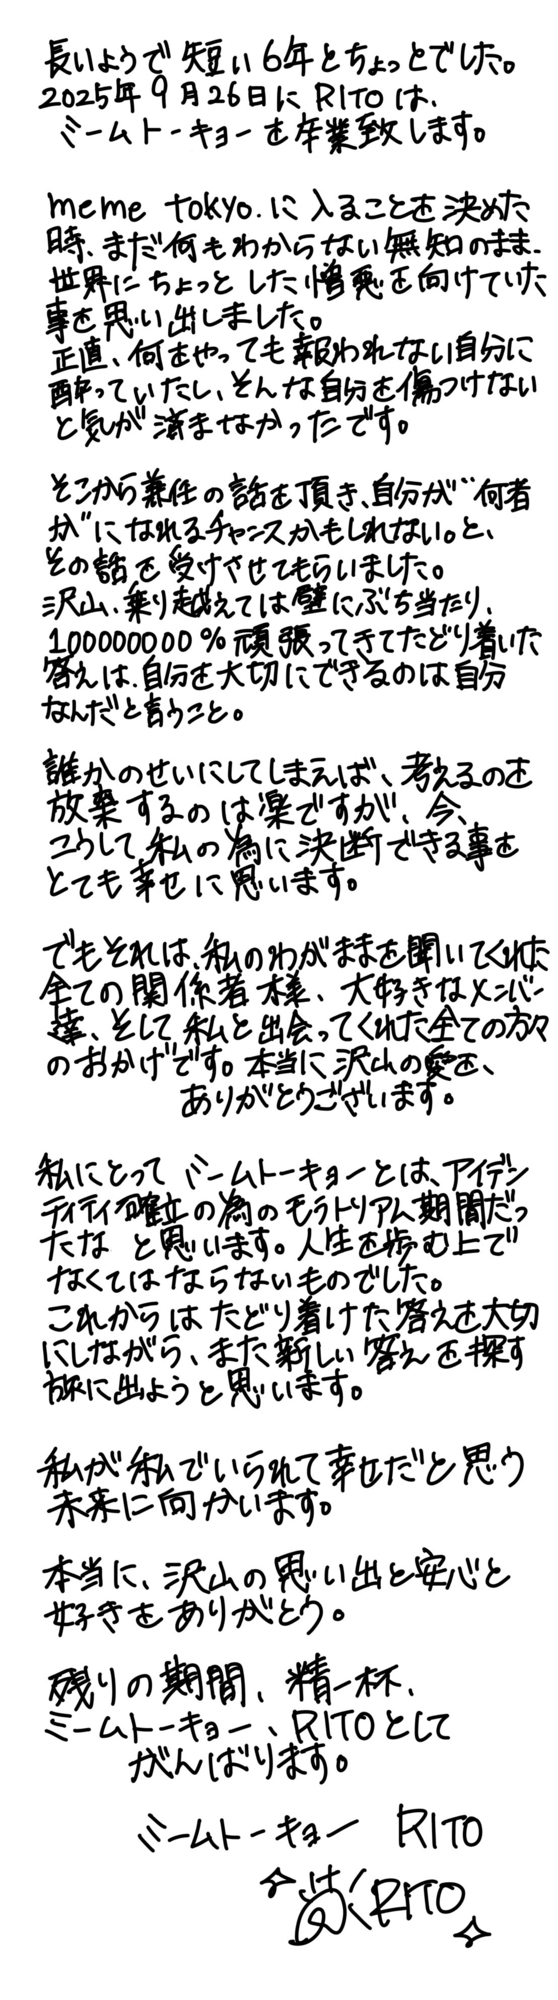 長いようで短い6年とちょっとでした。
2025年9月26日にRITOは、
ミームトーキョーを卒業致します。
meme tokyo.に入ることを決めた
時、まだ何もわからない無知のまま、
世界にちょっとした憎悪を向けていた
事を思い出しました。
正直、何をやっても報われない自分に
酔っていたし、そんな自分を傷つけない
と気が済ませなかったです。
そこから兼任の話を頂き、自分が"何者
か"になれるチャンスかもしれない。と、
その話を受けさせてもらいました。
沢山、乗り越えては壁にぶち当たり、
100000000%頑張ってきてたどり着いた
答えは、自分を大切にできるのは自分
なんだと言うこと。
誰かのせいにしてしまえば、考えるのを
放棄するのは楽ですが、今、
こうして、私の為に決断できる事を
とても幸せに思います。
でもそれは、私のわがままを聞いてくれた
全ての関係者様、大好きなメンバー
達、そして私と出会ってくれた全ての方々
のおかげです。本当に沢山の愛を、
ありがとうございます。
私にとってミームトーキョーとは、アイデン
ティティ確立の為のモラトリアム期間だっ
たなと思います。人生を歩む上で
なくてはならないものでした。
これからはたどり着けた答えを大切
にしながら、また新しい答えを探す
旅に出ようと思います。
私が私でいられて幸せだと思う
未来に向かいます。
本当に、沢山の思い出と安心と
好きをありがとう。
残りの期間、精一杯、
ミームトーキョー、RITOとして
がんばります。
ミームトーキョー RITO
RITO